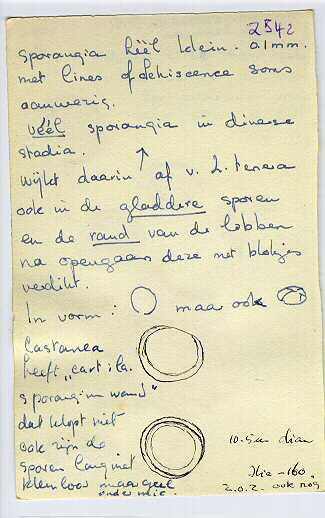 2542
sporangia héél klein. 0.1mm.
met lines of dehiscence soms
aanwezig.
véél sporangia in diverse
stadia.
wijkt daarin af v. L. tenera
ook in de gladdere sporen
en de rand van de lobben
na opengaan deze met blokjes
verdikt.
In vorm: maar ook
Castanea
heeft „cartila.
sporangium wand"
dat klopt niet
ook zijn de
sporen lang niet
kleurloos maar geel
onder mic.
10.5 um diam
z.o.z. ook nog